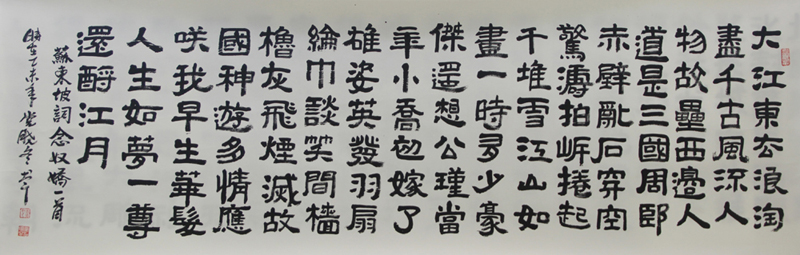 大江東去浪淘
盡千古風流人
物故壘西邊人
道是三國周郎
赤壁亂石穿空
驚濤拍岸捲起
千堆雪江山如
畫一時多少豪
傑還想公瑾當
年小喬初嫁了
雄姿英發羽扇
綸巾談笑間檣
櫓灰飛煙滅故
國神遊多情應
咲我早生華髮
人生如夢一尊
還酹江月
蘇東坡詞念奴嬌一首
未年